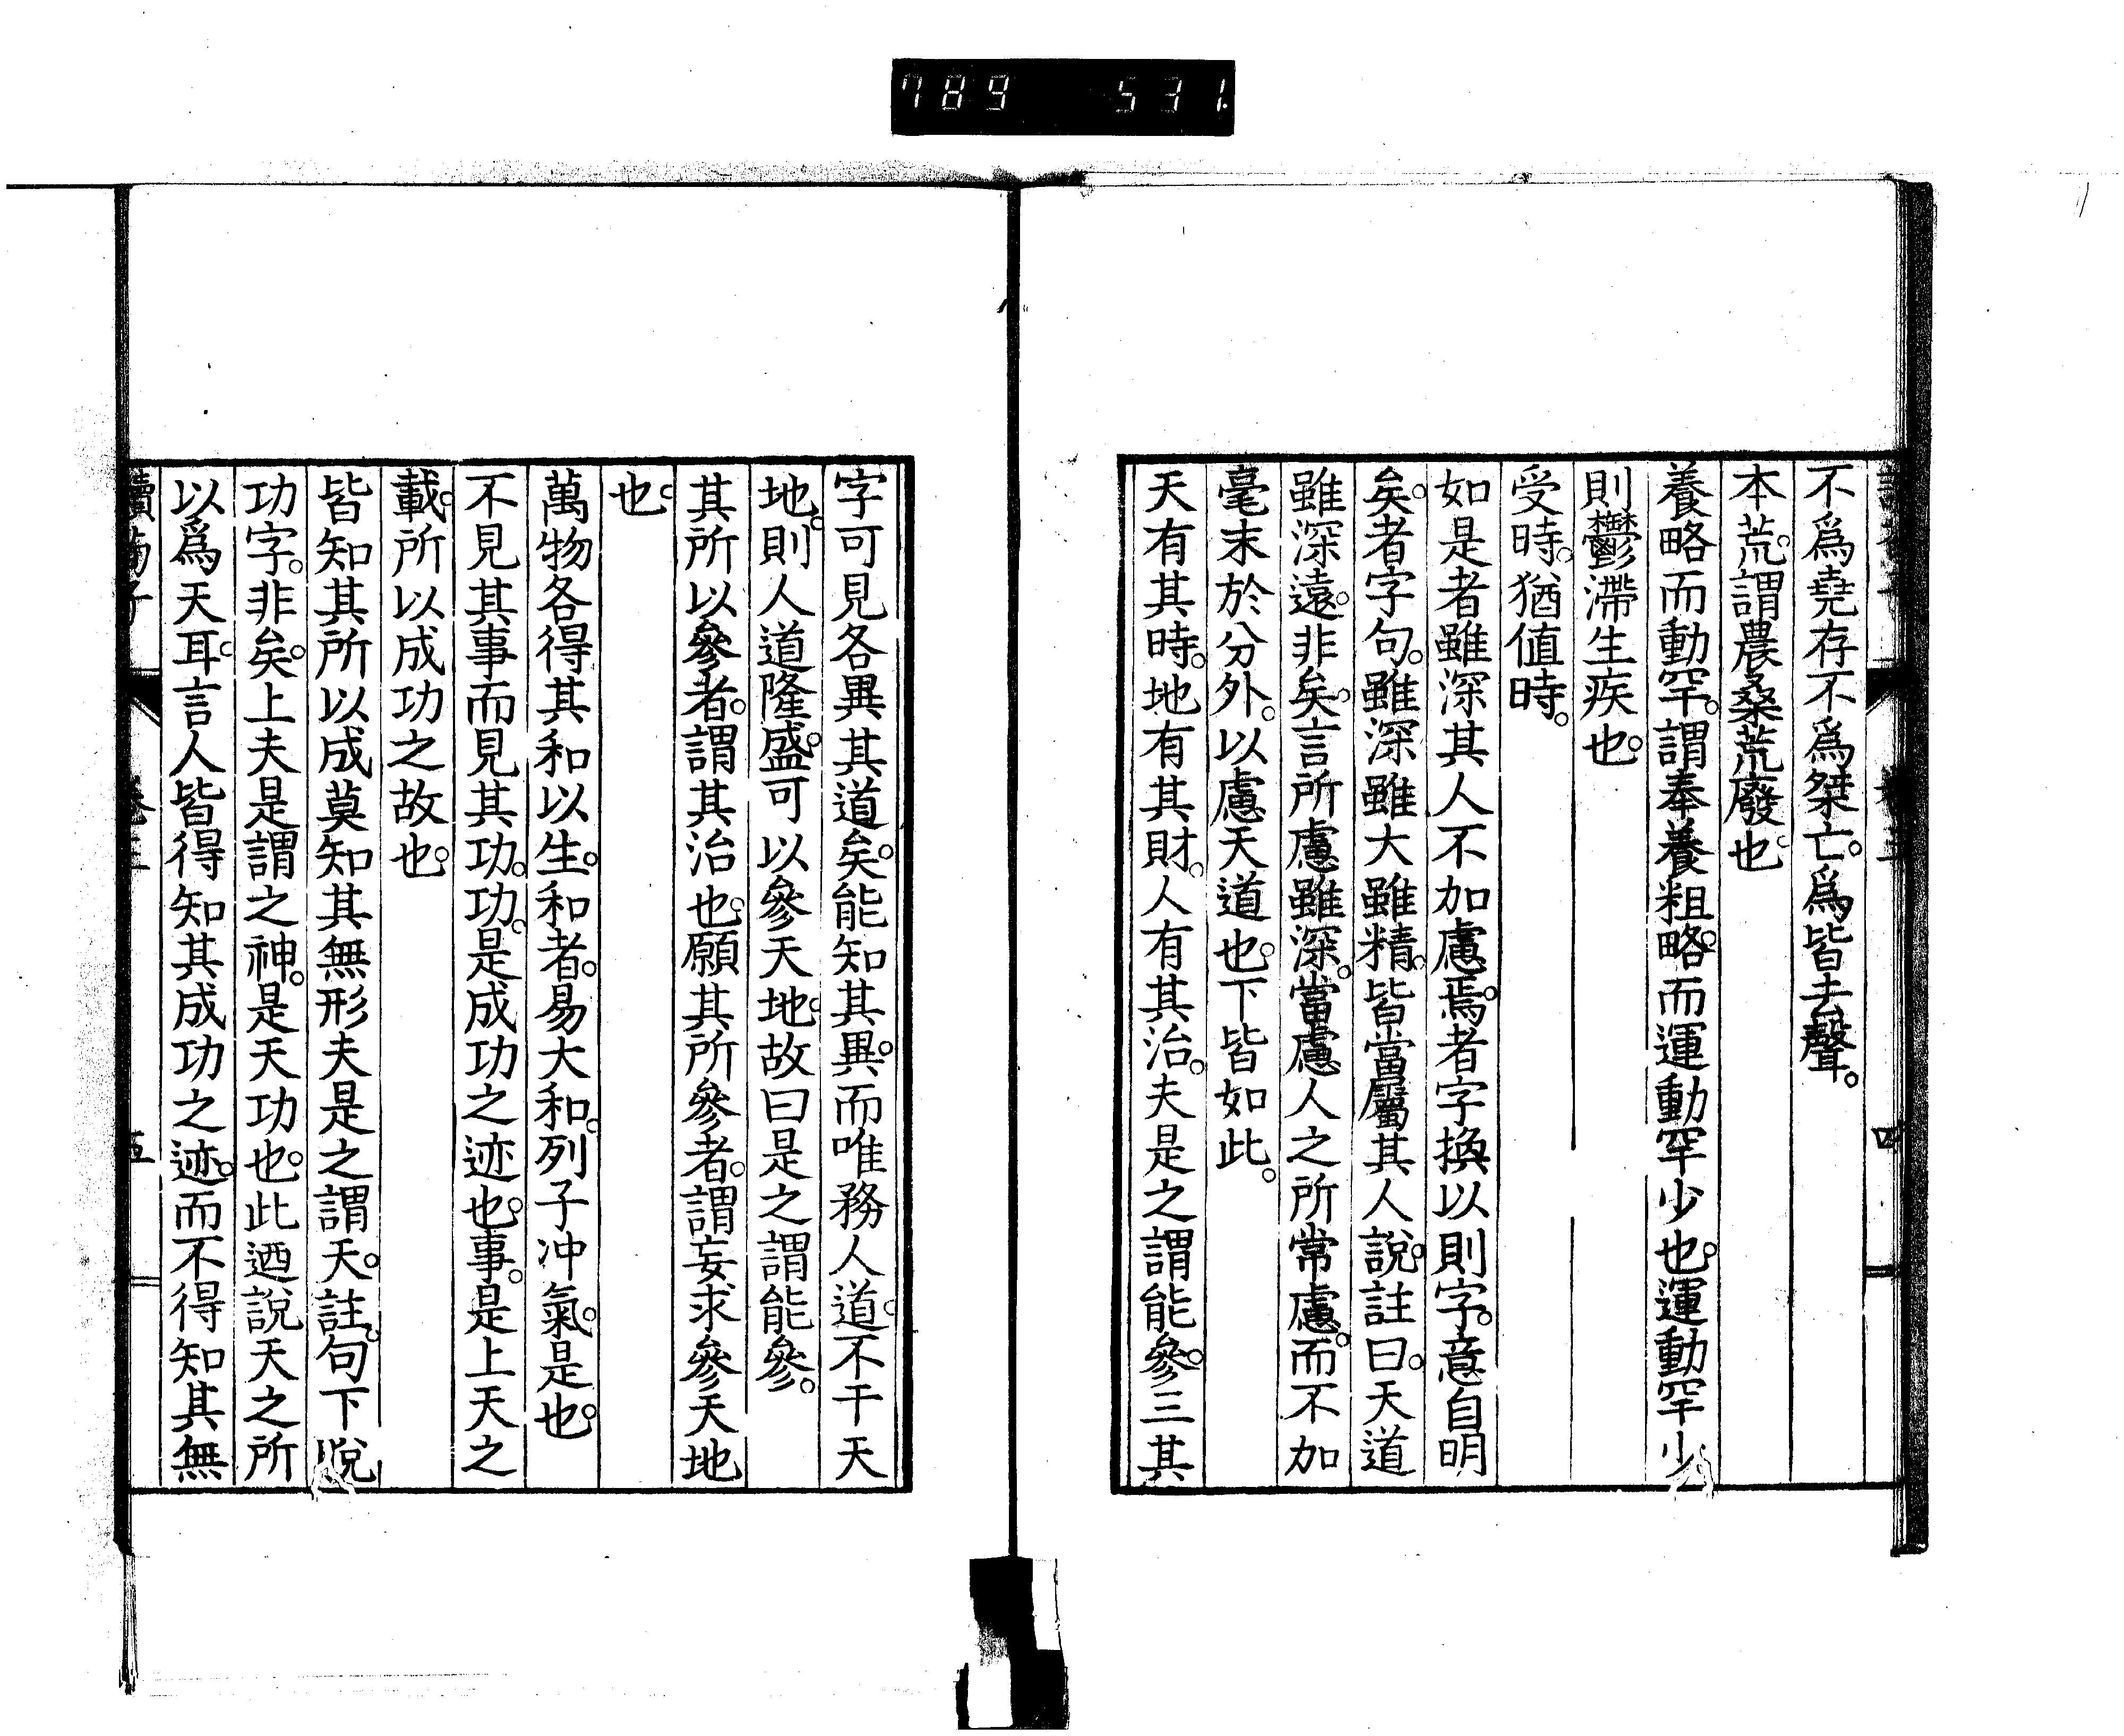 789 531
不爲堯存不爲桀亡。爲皆去聲。
本荒。謂農桑荒廢也。
養略而動罕。謂奉養粗略。而運動罕少也。運動罕少。
則鬱滯生疾也。
受時。猶値時。
如是者雖深其人不加慮焉。者字換以則字。意自明
矣。者字句。雖深雖大雖精。皆當屬其人說。註曰。天道
雖深遠。非矣。言所慮雖深。當慮人之所常慮。而不加
毫末於分外。以慮天道也。下皆如此。
天有其時。地有其財。人有其治。夫是之謂能參。三其
四
字可見各異其道矣。能知其異。而唯務人道。不干天
地。則人道隆盛。可以參天地。故曰是之謂能參。
其所以參者。謂其治也。願其所參者。謂妄求參天地
也。
萬物各得其和以生。和者。易大和。列子冲氣。是也。
不見其事而見其功。功。是成功之迹也。事。是上天之
載。所以成功之故也。
皆知其所以成莫知其無形夫是之謂天。註。句下脫
功字。非矣。上夫是謂之神。是天功也。此迺說天之所
以爲天耳。言人皆得知其成功之迹。而不得知其無
讀荀子 卷三 五